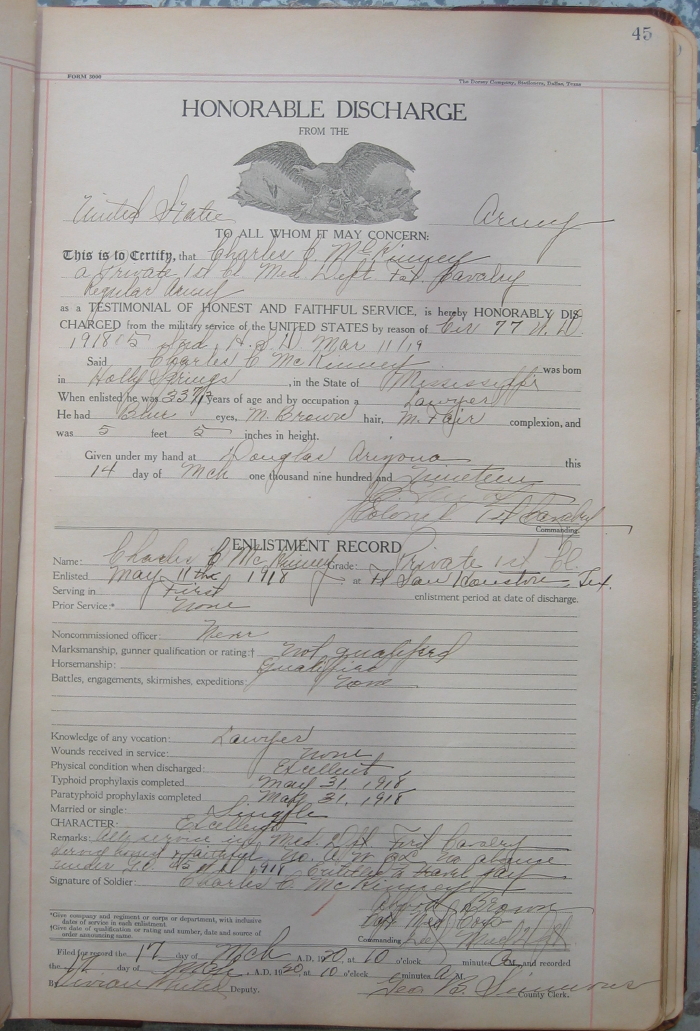 45
FORM 3000
The Dorsey Company, Stationers, Dallas, Texas
HONORABLE DISCHARGE
FROM THE
United States Army
TO ALL WHOM IT MAY CONCERN:
This is to Certify, that Charles C. McKinney
a Private 1st Cl Med Dept 1st Cavalry
Regular Army
as a TESTIMONIAL OF HONEST AND FAITHFUL SERVICE, is hereby HONORABLY DIS-
CHARGED from the military service of the UNITED STATES by reason of Cir 77 W. D.
1918 & 5 Ind. H. S. D Mar 11/19
Said Charles C McKinney was born
in Holly Springs, in the State of Mississippi
When enlisted he was 33 years of age and by occupation a Lawyer
He had Blue eyes, M. Brown hair, M. Fair complexion, and
was 5 feet 5 inches in height.
Given under my hand at Douglas Arizona this
14 day of Mch one thousand nine hundred and Nineteen
Colonel 1st Cavalry
Commanding
ENLISTMENT RECORD
Name: Charles C McKinney Grade: Private 1st Cl.
Enlisted May 11th 1918 at Ft Sam Houston, Tex.
Serving in First enlistment period at date of discharge.
Prior Service:* None
Noncommissioned officer: Never
Marksmanship, gunner qualification or rating:† Not qualified
Horsemanship: Qualified
Battles, engagements, skirmishes, expeditions: None
Knowledge of any vocation: Lawyer
Wounds received in service: None
Physical condition when discharged: Excellent
Typhoid prophylaxis completed May 31, 1918
Paratyphoid prophylaxis completed May 31, 1918
Married or single: Single
CHARACTER: Excellent
Remarks: All service in Med. Dept First Cavalry
Service honest & faithful No. A W O L No absence
under G.O. 45 1918 Entitled to travel pay
Signature of Soldier: Charles C McKinney
Brown
Capt Med Corps
Commanding
*Give company and regiment or corps or department, with inclusive
dates of service in each enlistment.
†Give date of qualification or rating and number, date and source of
order announcing same.
Filed for record the 17 day of Mch A.D. 1920, at 10 o'clock minutes A M., and recorded
the 17 day of Mch, A.D. 1920, at 10 o'clock minutes A M.
By Vivian White Deputy. Geo B. Simmons County Clerk.